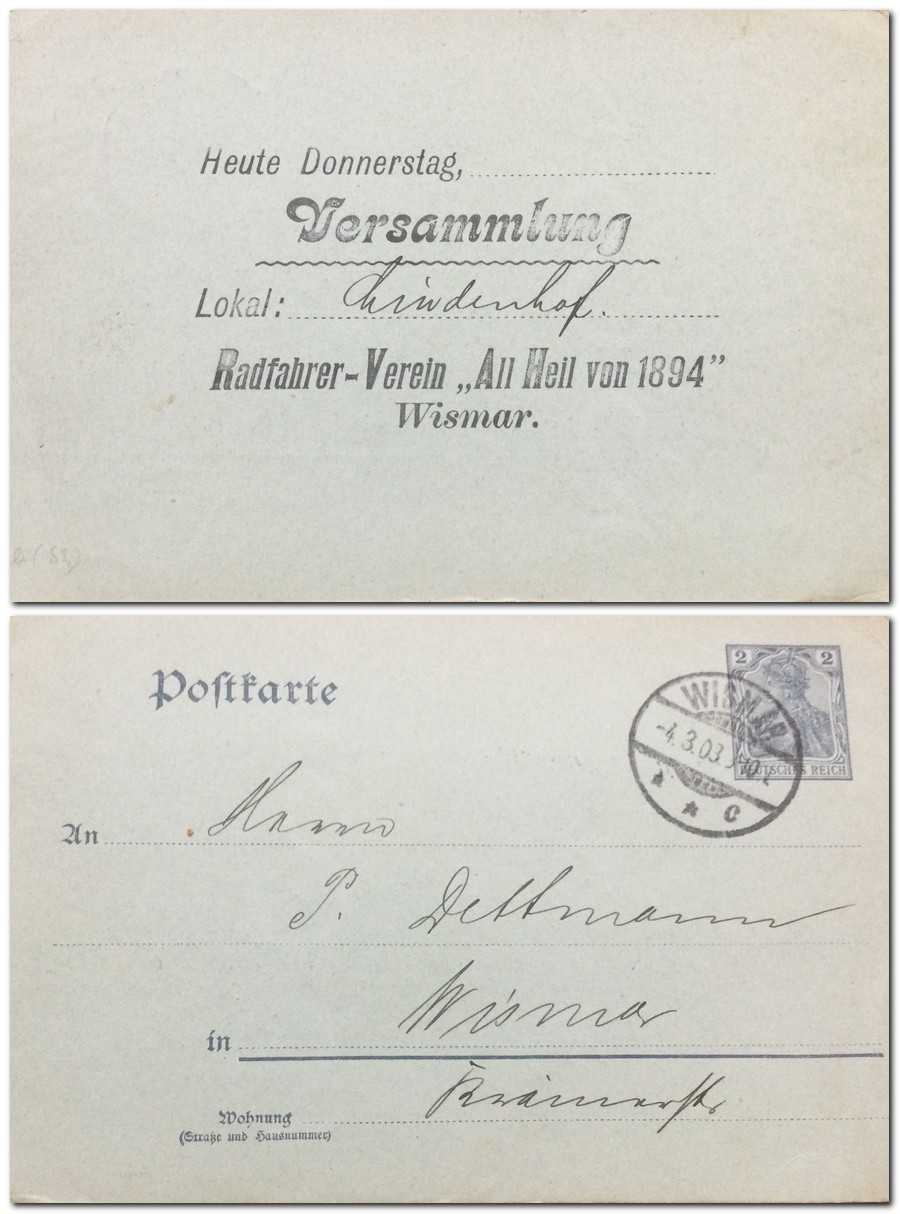 Heute Donnerstag,
Versammlung
Lokal: Lindenhof.
Radfahrer-Verein „All Heil von 1894”
Wismar.
Poſtkarte
2 2
DEUTSCHES REICH
WISMAR
-4.3.03.
* * c
An Herrn
P. Dettmann
in Wismar
Krämerstr
Wohnung
(Straße und Hausnummer)